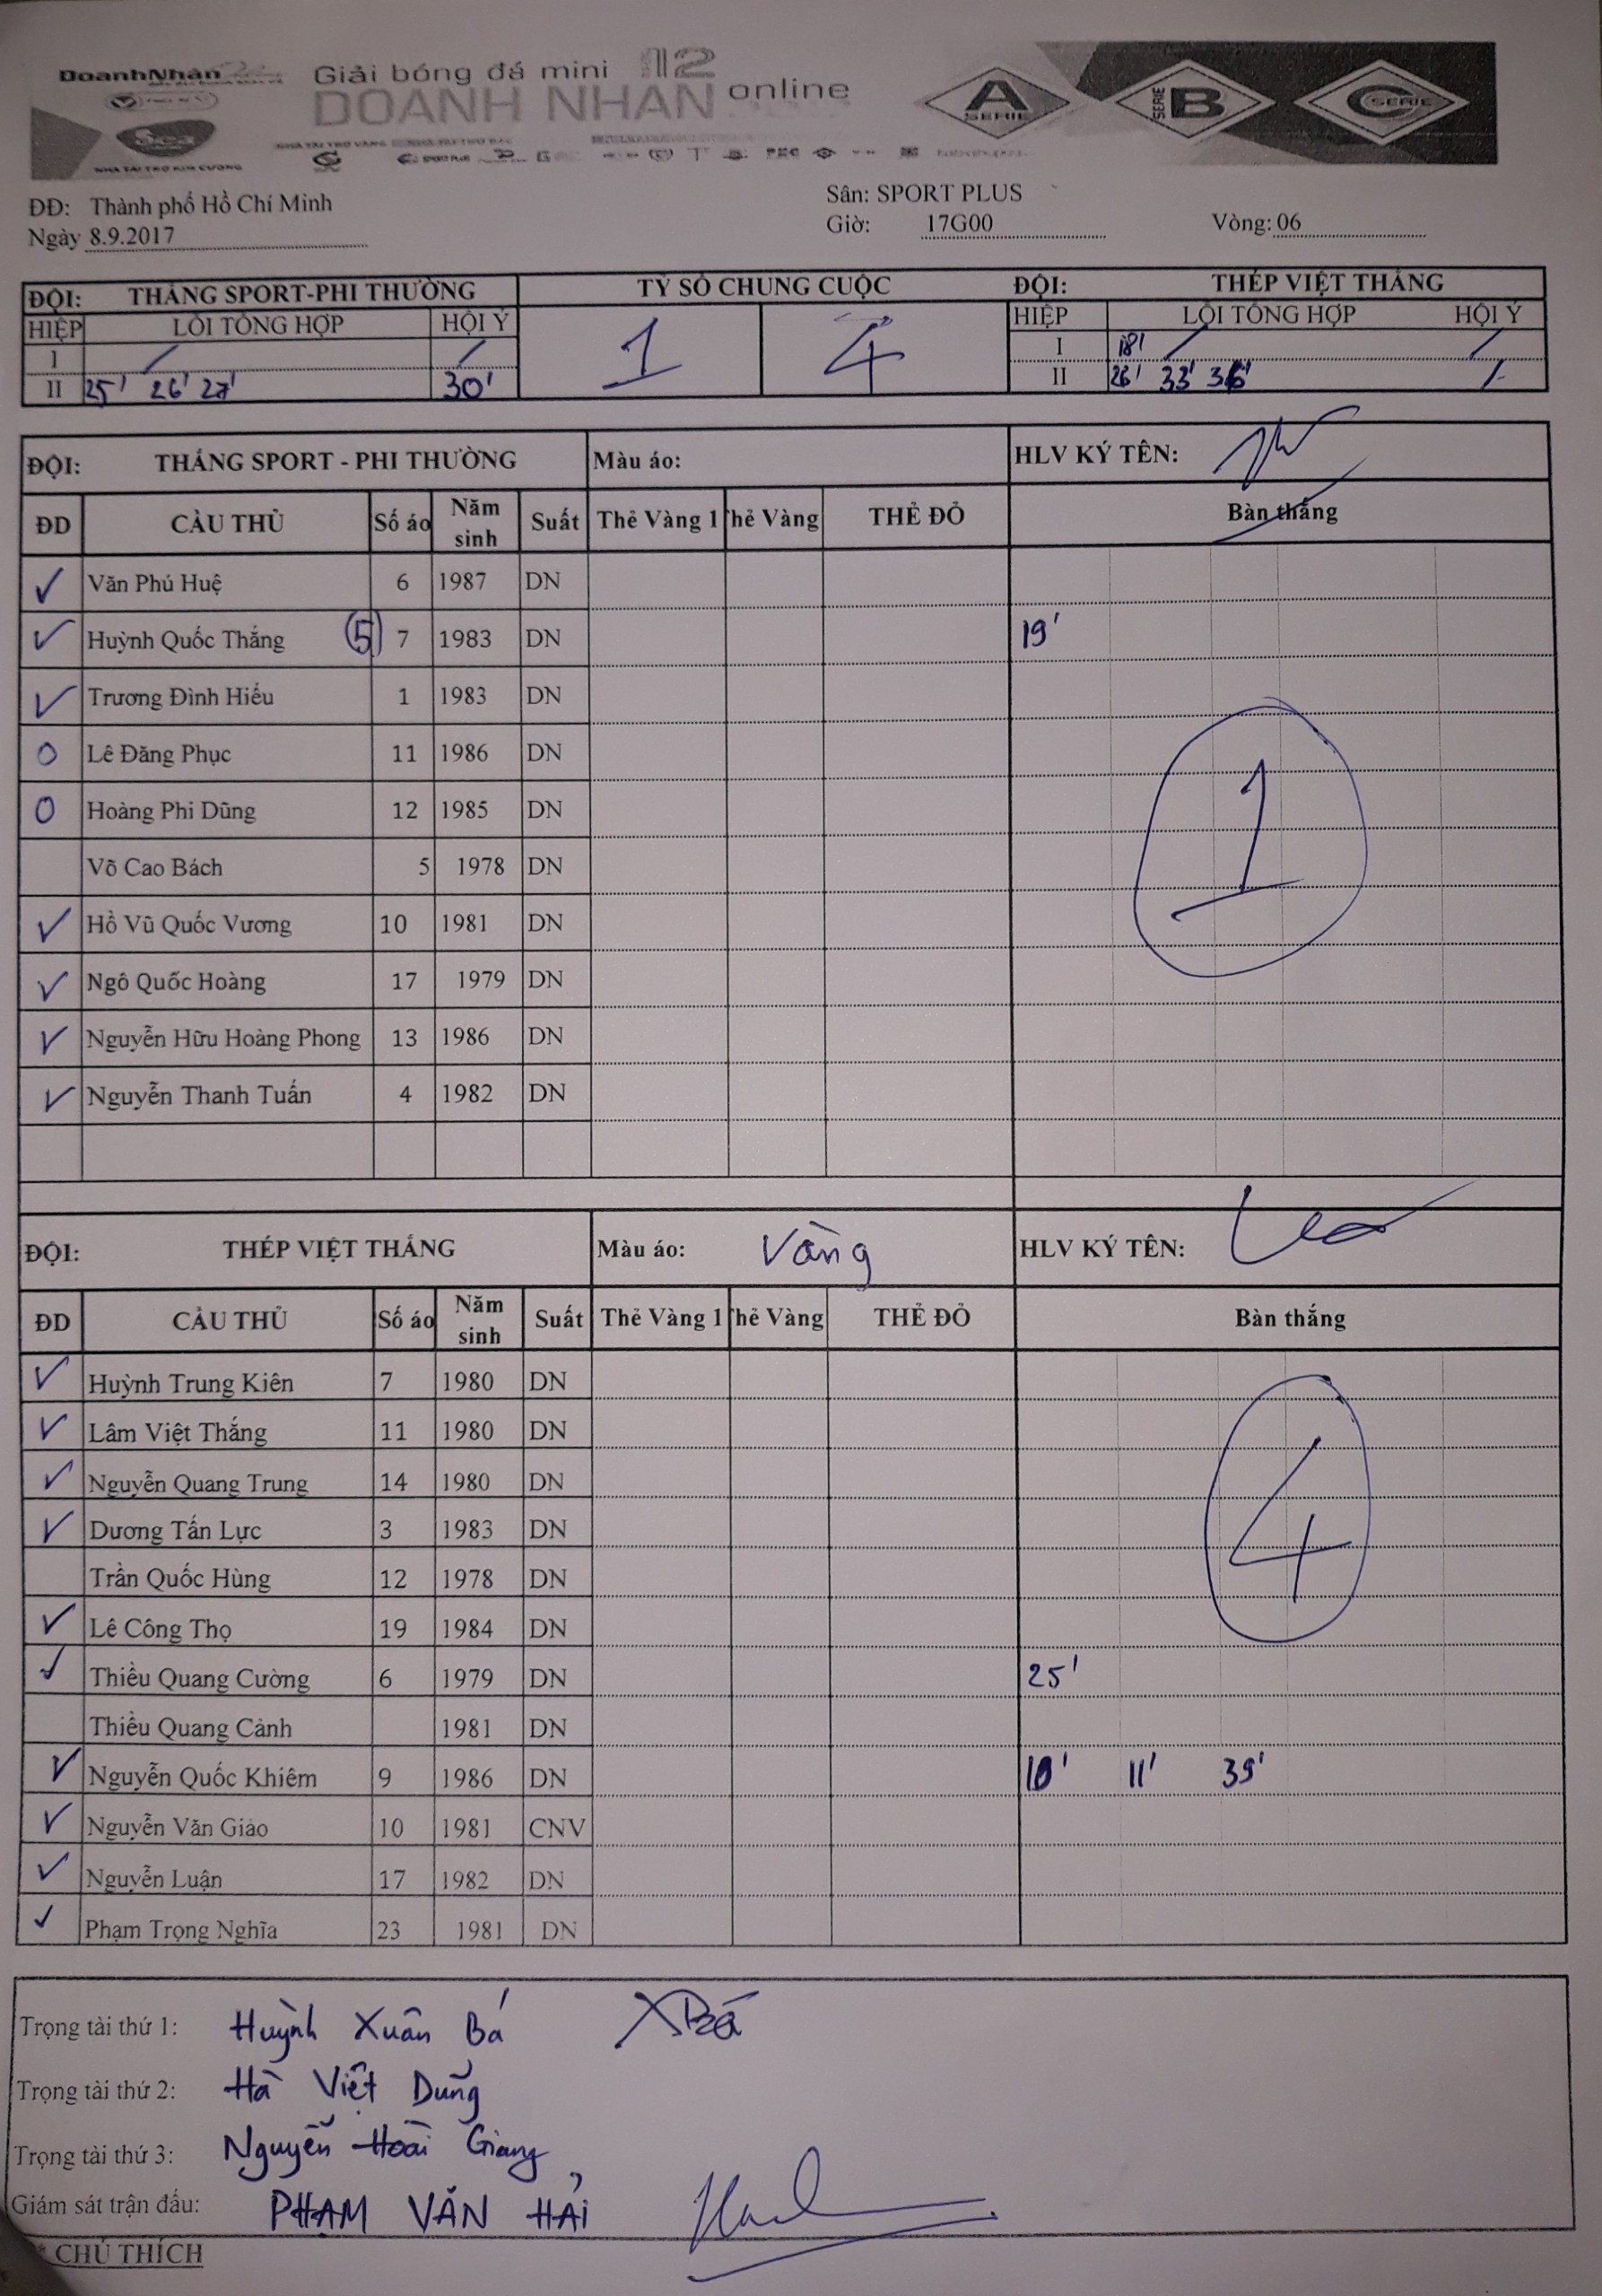 DoanhNhân
Giải bóng đá mini 12
DOANH NHAN online
A SERIE
SERIE B
C SERIE
Sea
NHÀ TÀI TRỢ KIM CƯƠNG
NHÀ TÀI TRỢ VÀNG
ĐĐ: Thành phố Hồ Chí Minh
Sân: SPORT PLUS
Ngày 8.9.2017
Giờ: 17G00
Vòng: 06
ĐỘI: THẮNG SPORT-PHI THƯỜNG TỶ SỐ CHUNG CUỘC ĐỘI: THÉP VIỆT THẮNG
HIỆP LỖI TỔNG HỢP HỘI Ý 1 4 HIỆP LỖI TỔNG HỢP HỘI Ý
I / / I 18' / /
II 25' 26' 27' 30' II 26' 33' 36' /
ĐỘI: THẮNG SPORT - PHI THƯỜNG Màu áo: HLV KÝ TÊN:
ĐD CẦU THỦ Số áo Năm sinh Suất Thẻ Vàng 1 hẻ Vàng THẺ ĐỎ Bàn thắng
✓ Văn Phú Huệ 6 1987 DN
✓ Huỳnh Quốc Thắng (5) 7 1983 DN 19'
✓ Trương Đình Hiếu 1 1983 DN
O Lê Đăng Phục 11 1986 DN
O Hoàng Phi Dũng 12 1985 DN
1
Võ Cao Bách 5 1978 DN
✓ Hồ Vũ Quốc Vương 10 1981 DN
✓ Ngô Quốc Hoàng 17 1979 DN
✓ Nguyễn Hữu Hoàng Phong 13 1986 DN
✓ Nguyễn Thanh Tuấn 4 1982 DN
ĐỘI: THÉP VIỆT THẮNG Màu áo: Vàng HLV KÝ TÊN:
ĐD CẦU THỦ Số áo Năm sinh Suất Thẻ Vàng 1 hẻ Vàng THẺ ĐỎ Bàn thắng
✓ Huỳnh Trung Kiên 7 1980 DN
✓ Lâm Việt Thắng 11 1980 DN
✓ Nguyễn Quang Trung 14 1980 DN
✓ Dương Tấn Lực 3 1983 DN
4
Trần Quốc Hùng 12 1978 DN
✓ Lê Công Thọ 19 1984 DN
✓ Thiều Quang Cường 6 1979 DN 25'
Thiều Quang Cảnh 1981 DN
✓ Nguyễn Quốc Khiêm 9 1986 DN 10' 11' 39'
✓ Nguyễn Văn Giáo 10 1981 CNV
✓ Nguyễn Luận 17 1982 DN
✓ Phạm Trọng Nghĩa 23 1981 DN
Trọng tài thứ 1: Huỳnh Xuân Bá XBá
Trọng tài thứ 2: Hà Việt Dũng
Trọng tài thứ 3: Nguyễn Hoài Giang
Giám sát trận đấu: PHẠM VĂN HẢI
* CHÚ THÍCH